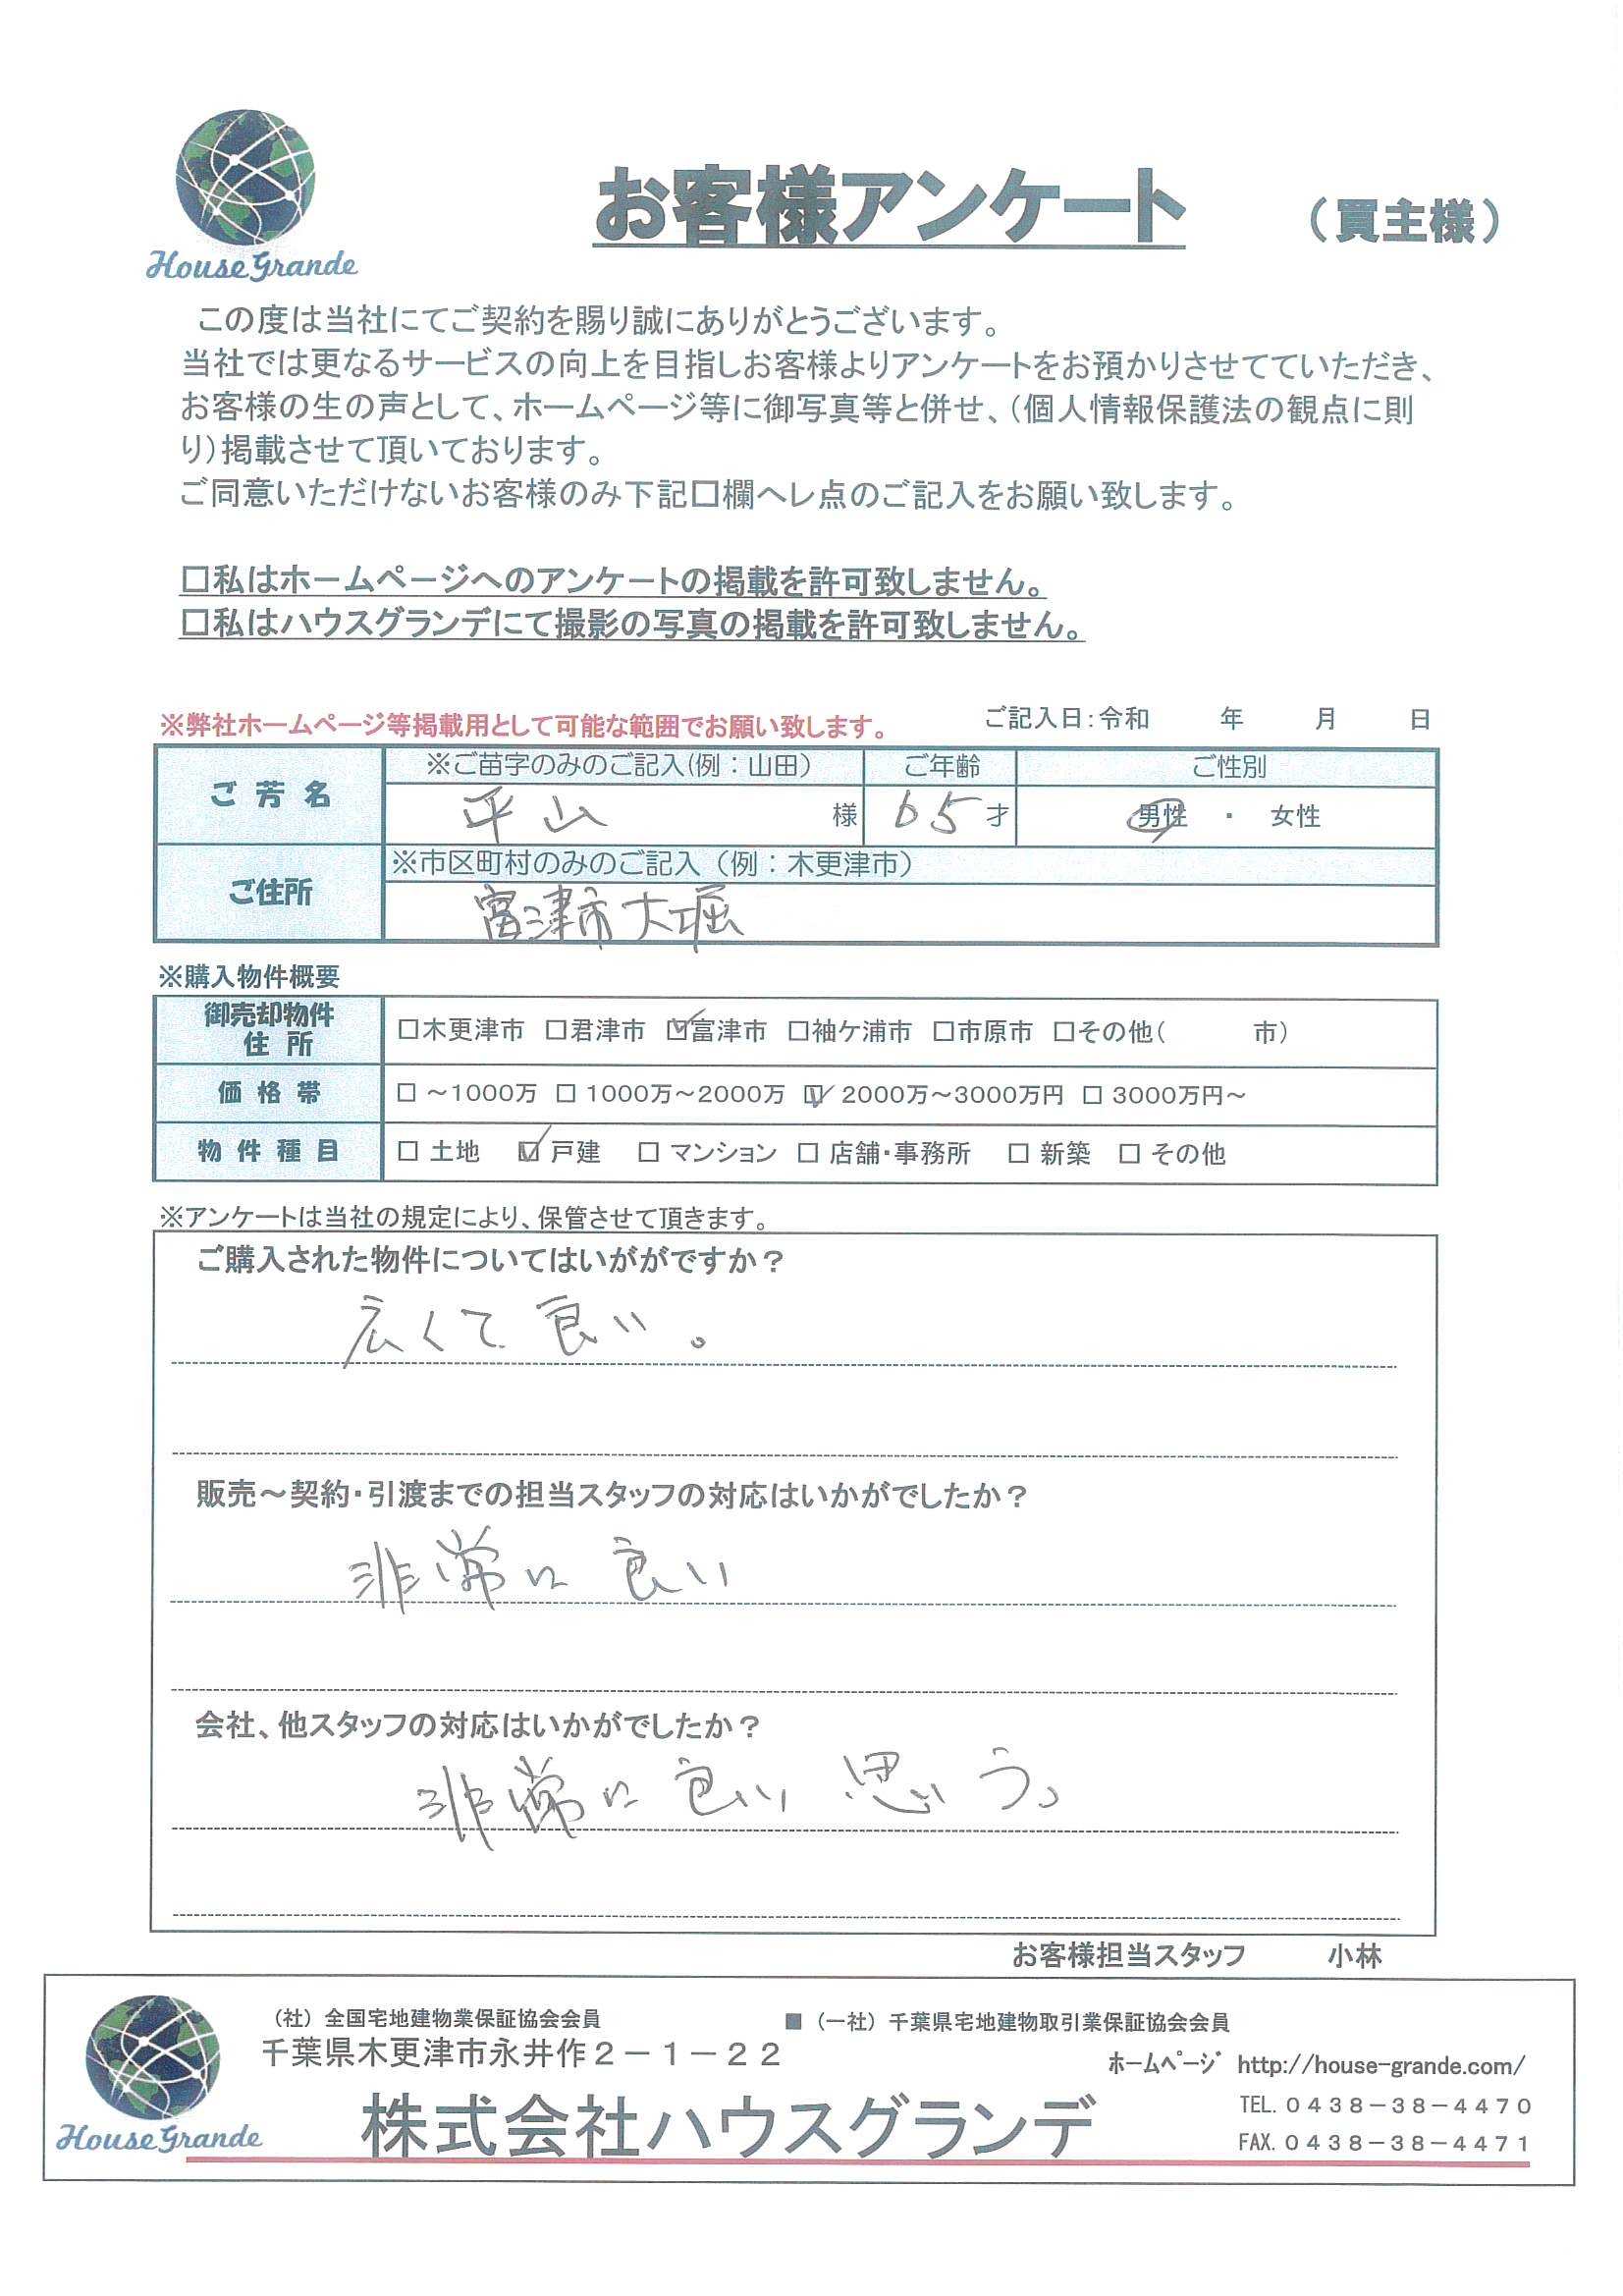 House Grande
お客様アンケート （買主様）
この度は当社にてご契約を賜り誠にありがとうございます。
当社では更なるサービスの向上を目指しお客様よりアンケートをお預かりさせてていただき、
お客様の生の声として、ホームページ等に御写真等と併せ、（個人情報保護法の観点に則
り）掲載させて頂いております。
ご同意いただけないお客様のみ下記口欄へレ点のご記入をお願い致します。
□私はホームページへのアンケートの掲載を許可致しません。
□私はハウスグランデにて撮影の写真の掲載を許可致しません。
※弊社ホームページ等掲載用として可能な範囲でお願い致します。 ご記入日：令和 年 月 日
ご芳名 ※ご苗字のみのご記入(例：山田） ご年齢 ご性別
平山 様 65才 男性 ・ 女性
ご住所 ※市区町村のみのご記入（例：木更津市）
富津市大堀
※購入物件概要
御売却物件
住所 □木更津市 □君津市 ☑富津市 □袖ケ浦市 □市原市 □その他（ 市）
価格帯 □ ～1000万 □ 1000万～2000万 ☑ 2000万～3000万円 □ 3000万円～
物件種目 □ 土地 ☑ 戸建 □ マンション □ 店舗・事務所 □ 新築 □ その他
※アンケートは当社の規定により、保管させて頂きます。
ご購入された物件についてはいががですか？
広くて良い。
販売～契約・引渡までの担当スタッフの対応はいかがでしたか？
非常に良い
会社、他スタッフの対応はいかがでしたか？
非常に良い思いう。
お客様担当スタッフ 小林
（社）全国宅地建物業保証協会会員 ■（一社）千葉県宅地建物取引業保証協会会員
千葉県木更津市永井作２－１－２２
ﾎｰﾑﾍﾟｰｼﾞ http://house-grande.com/
House Grande
株式会社ハウスグランデ
TEL.０４３８－３８－４４７０
FAX.０４３８－３８－４４７１